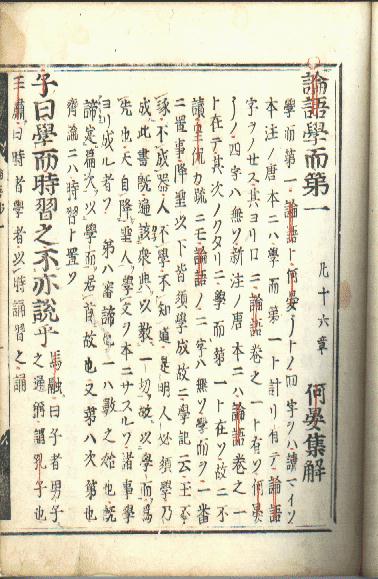 論語學而第一 凡十六章 何晏集解
學而第一 論語ト何晏〱トノ四字ヲハ讀マイソ
本注ノ唐本ニハ學而第一ト計リ有テ論語
字ヲノセス其ヨリ口ニ論語卷之一ト有ソ何晏
〱ノ四字ハ無ソ新注ノ唐本ニハ論語卷之一
ト在テ其次ノクタリニ學而第一ト在ソ故ニ不
讀皇侃カ疏ニモ論語ノ二字ハ無ソ學而ヲ一番
ニ置事降聖以下皆須學成故ニ學記云玉不
琢不成器人不學不知道是明人必須學乃
成此書既遍該衆典以教一切故以學而爲
先也天自リ降聖人學文ヲ本ニサスルソ諸事學
ヨリ成ルソ 第ハ審諦也一ハ數之始也既
諦定篇次以學而居首故也又第ハ次第也
齊論ニハ時習ト置ソ
子曰學而時習之不亦說乎 馬融曰子者男子
之通稱謂孔子也
王肅曰時者學者以時誦習之誦